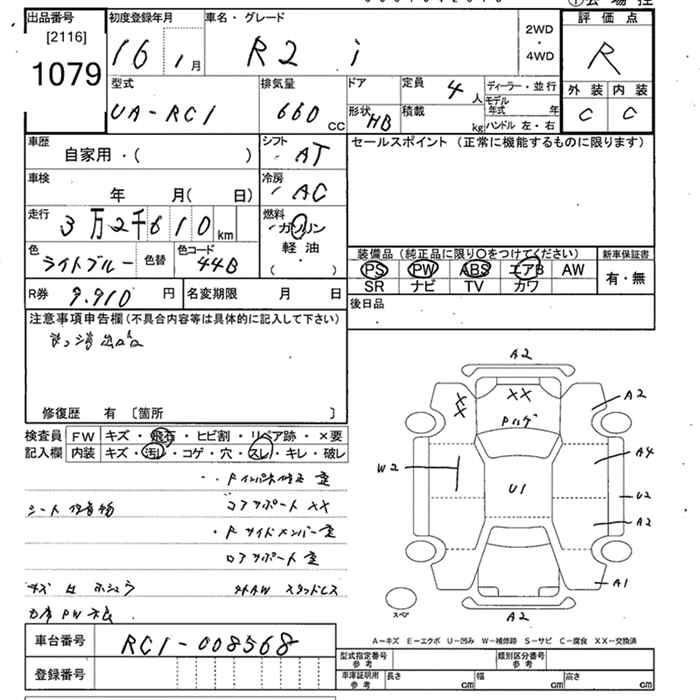 出品番号
[2116]
1079
初度登録年月
16 1月
車名・グレード
R2 i
2WD
・
4WD
評価点
R
外装 内装
C C
型式
UA-RC1
排気量
660 CC
ドア
形状 HB
定員 4 人
積載 kg
ディーラー・並行
モデル年式 年
ハンドル 左・右
車歴
自家用・( )
シフト
AT
セールスポイント(正常に機能するものに限ります)
車検
年 月( 日)
冷房
AC
走行
3万2千610km
燃料
ガソリン
軽油
( )
色
ライトブルー
色替
色コード
44B
装備品(純正品に限り○をつけてください)
新車保証書
PS PW ABS エアB AW
有・無
SR ナビ TV カワ
R券 9.910 円
名変期限 月 日
後日品
注意事項申告欄(不具合内容等は具体的に記入して下さい)
修復歴 有 〔箇所 〕
検査員 FW キズ・飛石・ヒビ割・リペア跡・×要
記入欄 内装 キズ・汚レ・コゲ・穴・スレ・キレ・破レ
コアサポート XX
シート
Fサイドメンバー
ロアサポート
スタッドレス
PW
A2
XX
XX
A2
W2
U1
A4
U2
A2
A1
A2
スペア
A-キズ E-エクボ U-凹み W-補修跡 S-サビ C-腐食 XX-交換済
車台番号 RC1-008568
登録番号
型式指定番号 参考
類別区分番号 参考
車庫証明用 参考
長さ cm
幅 cm
高さ cm